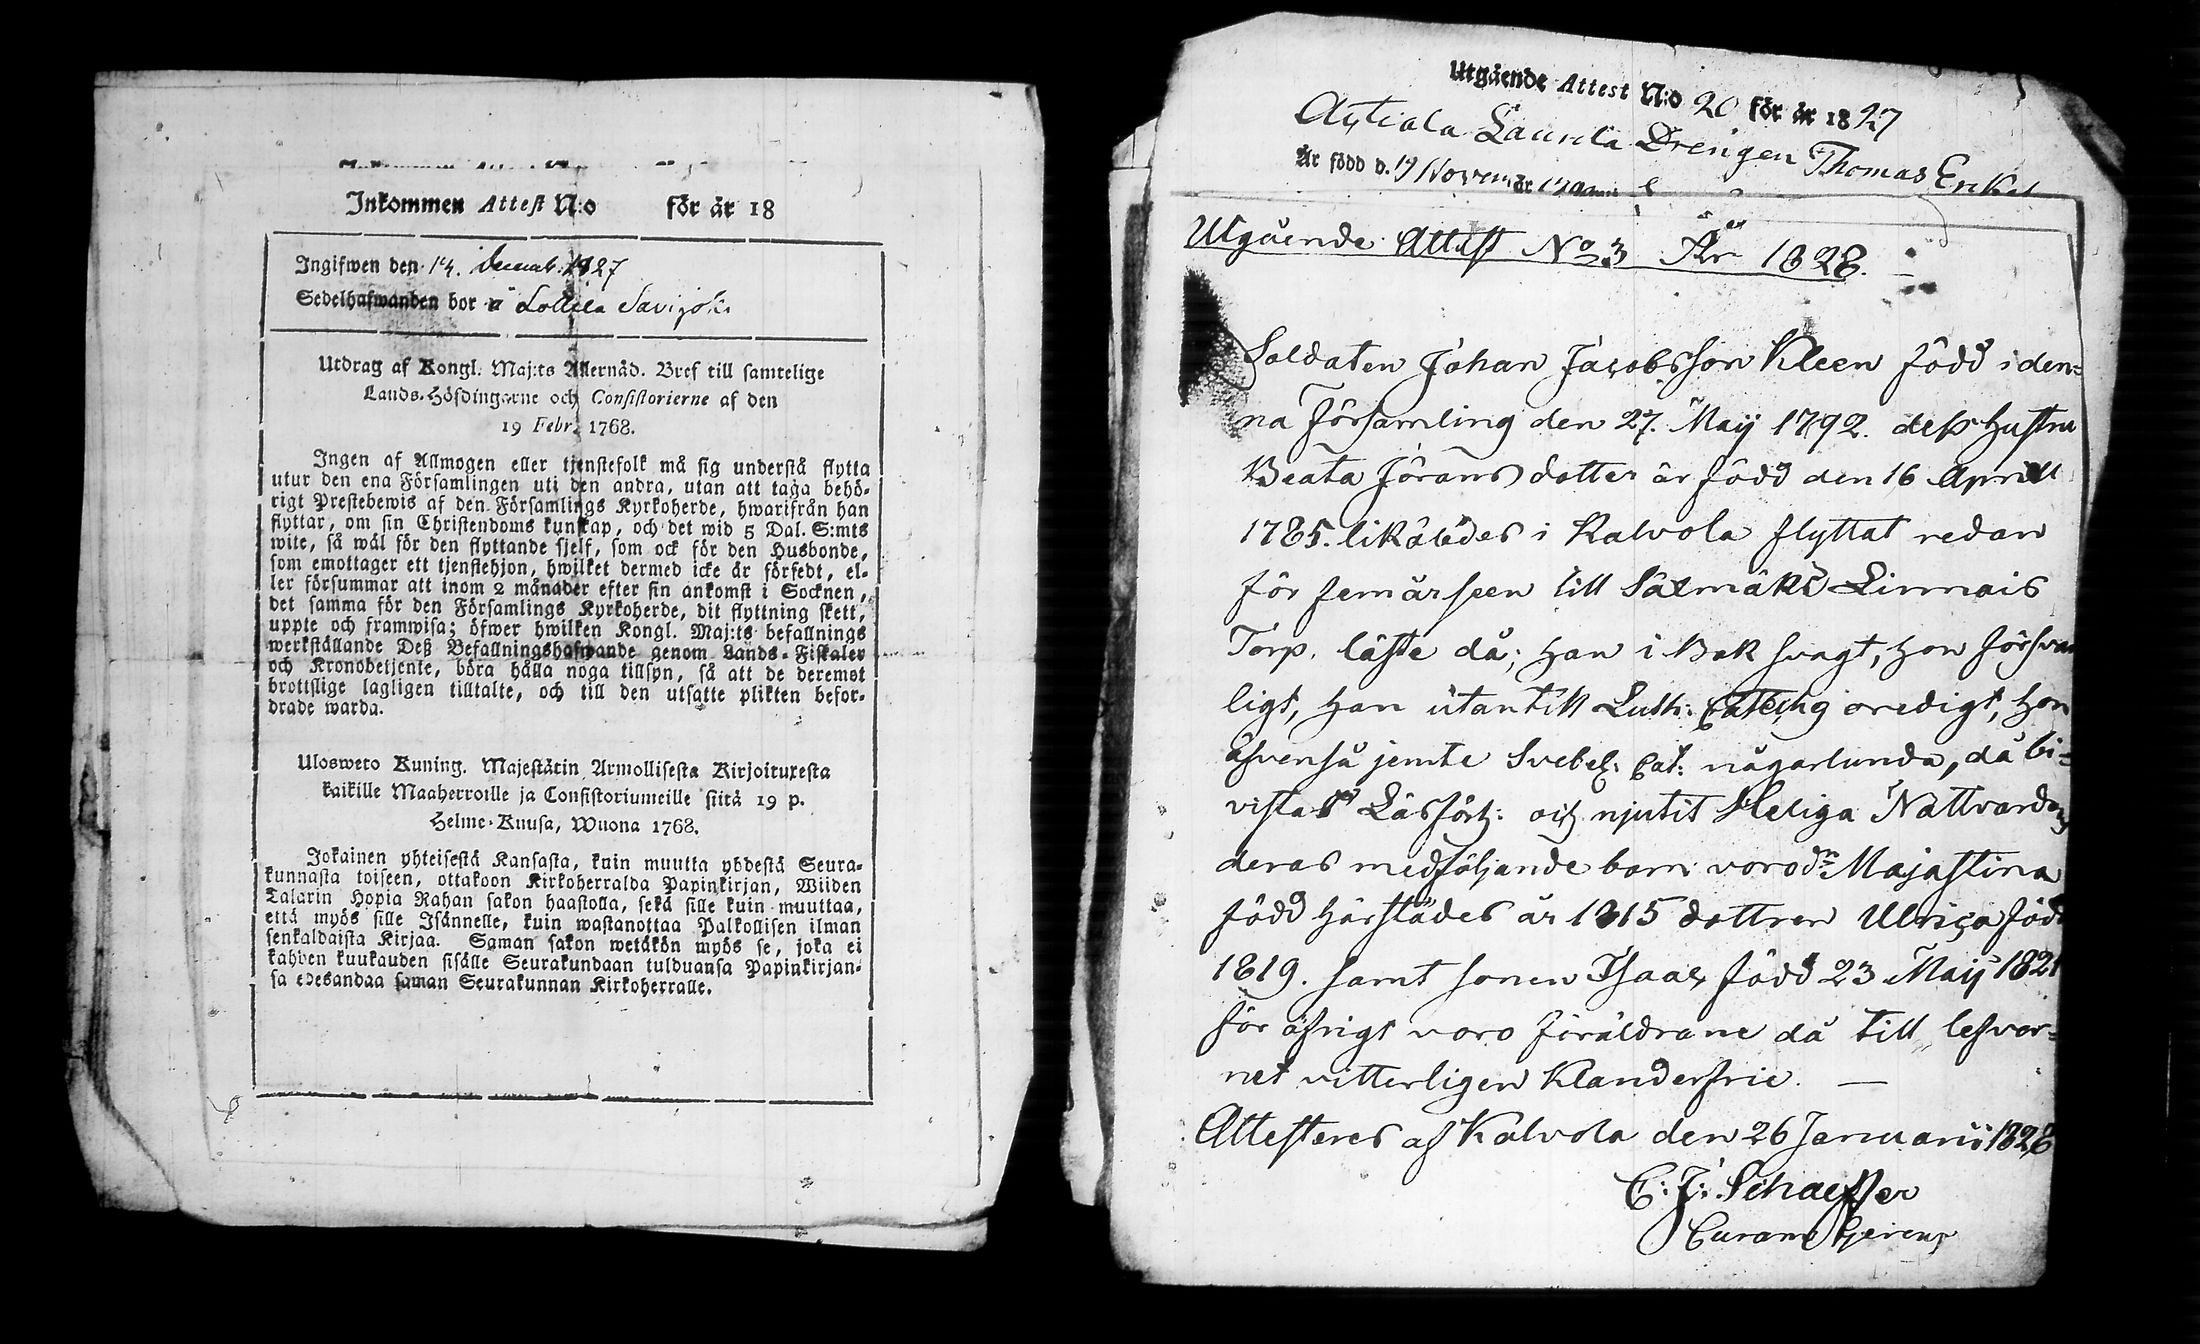 Inkommen Attest N:o för år 18
Ingifwen den 14. Decemb. 1827
Sedelhafwanden bor i Lollila Savijoki
Utdrag af Kongl. Maj:ts Allernåd. Bref till samtelige
Lands-Höfdingarne och Consistorierne af den
19 Febr. 1768.
Ingen af Allmogen eller tjenstefolk må sig understå flytta
utur den ena Församlingen uti den andra, utan att taga behö-
rigt Prestebewis af den Församlings Kyrkoherde, hwarifrån han
flyttar, om sin Christendoms kunskap, och det wid 5 Dal. S:mts
wite, så wäl för den flyttande sjelf, som ock för den Husbonde,
som emottager ett tjenstehjon, hwilket dermed icke är försedt, el-
ler försummar att inom 2 månader efter sin ankomst i Socknen,
det samma för den Församlings Kyrkoherde, dit flyttning skett,
uppte och framwisa; öfwer hwilken Kongl. Maj:ts befallnings
werkställande Deß Befallningshafwande genom Lands-Fiskaler
och Kronobetjente, böra hålla noga tillsyn, så att de deremot
brottslige lagligen tilltalte, och till den utsatte plikten befor-
drade warda.
Ulosweto Kuning. Majestätin Armollisesta Kirjoituxesta
kaikille Maaherroille ja Consistoriumeille siitä 19 p.
Helme-Kuusa, Wuona 1768.
Jokainen yhteisestä Kansasta, kuin muutta yhdestä Seura-
kunnasta toiseen, ottakoon Kirkoherralda Papinkirjan, Wiiden
Talarin Hopia Rahan sakon haastolla, sekä sille kuin muuttaa,
että myös sille Isännelle, kuin wastanottaa Palkollisen ilman
senkaldaista Kirjaa. Saman sakon wetäkön myös se, joka ei
kahden kuukauden sisälle Seurakundaan tulduansa Papinkirjan-
sa edesandaa saman Seurakunnan Kirkoherralle.
Utgående Attest N:o 20 för år 1827
Laurila Drengen Thomas
Är född d. 19 Novem år
Utgående Attest No 3 För år 1828.
Soldaten Johan Jacobsson Kleen född i den=
na församling den 27. Maij 1792. dess hustru
Beata Jörans dotter är född den 16 Aprill
1785. likaledes i Kalvola flyttat redan
för fem år seen till Säxmäki Linnais
Torp. läste då; han i Bok svagt, hon försvar
ligt, han utantill Luth: Catech oredigt, hon
äfvenså jemte Svebel: Cat: någorlunda, då bi=
vistat Läsförh: och njutit Heliga Nattvarden
deras medföljande barn voro dn Majastina
född härstädes år 1815 dottren Ulrica född
1819. samt sonen Isaac född 23 Maij 1821
för öfrigt voro föräldrarne då till lefver=
net vitterligen klanderfrie. —
Attesteres af Kalvola den 26 Januarii 1828
C: J: Schaeffer
Curam Gerens